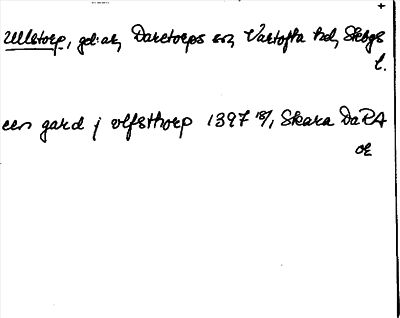 +
Ullstorp, gd:ar, Daretorps sn, Vartofta hd, Skbgs
l.
een gard j vlfsthorp 1397 18/1 Skara DaRA
OE